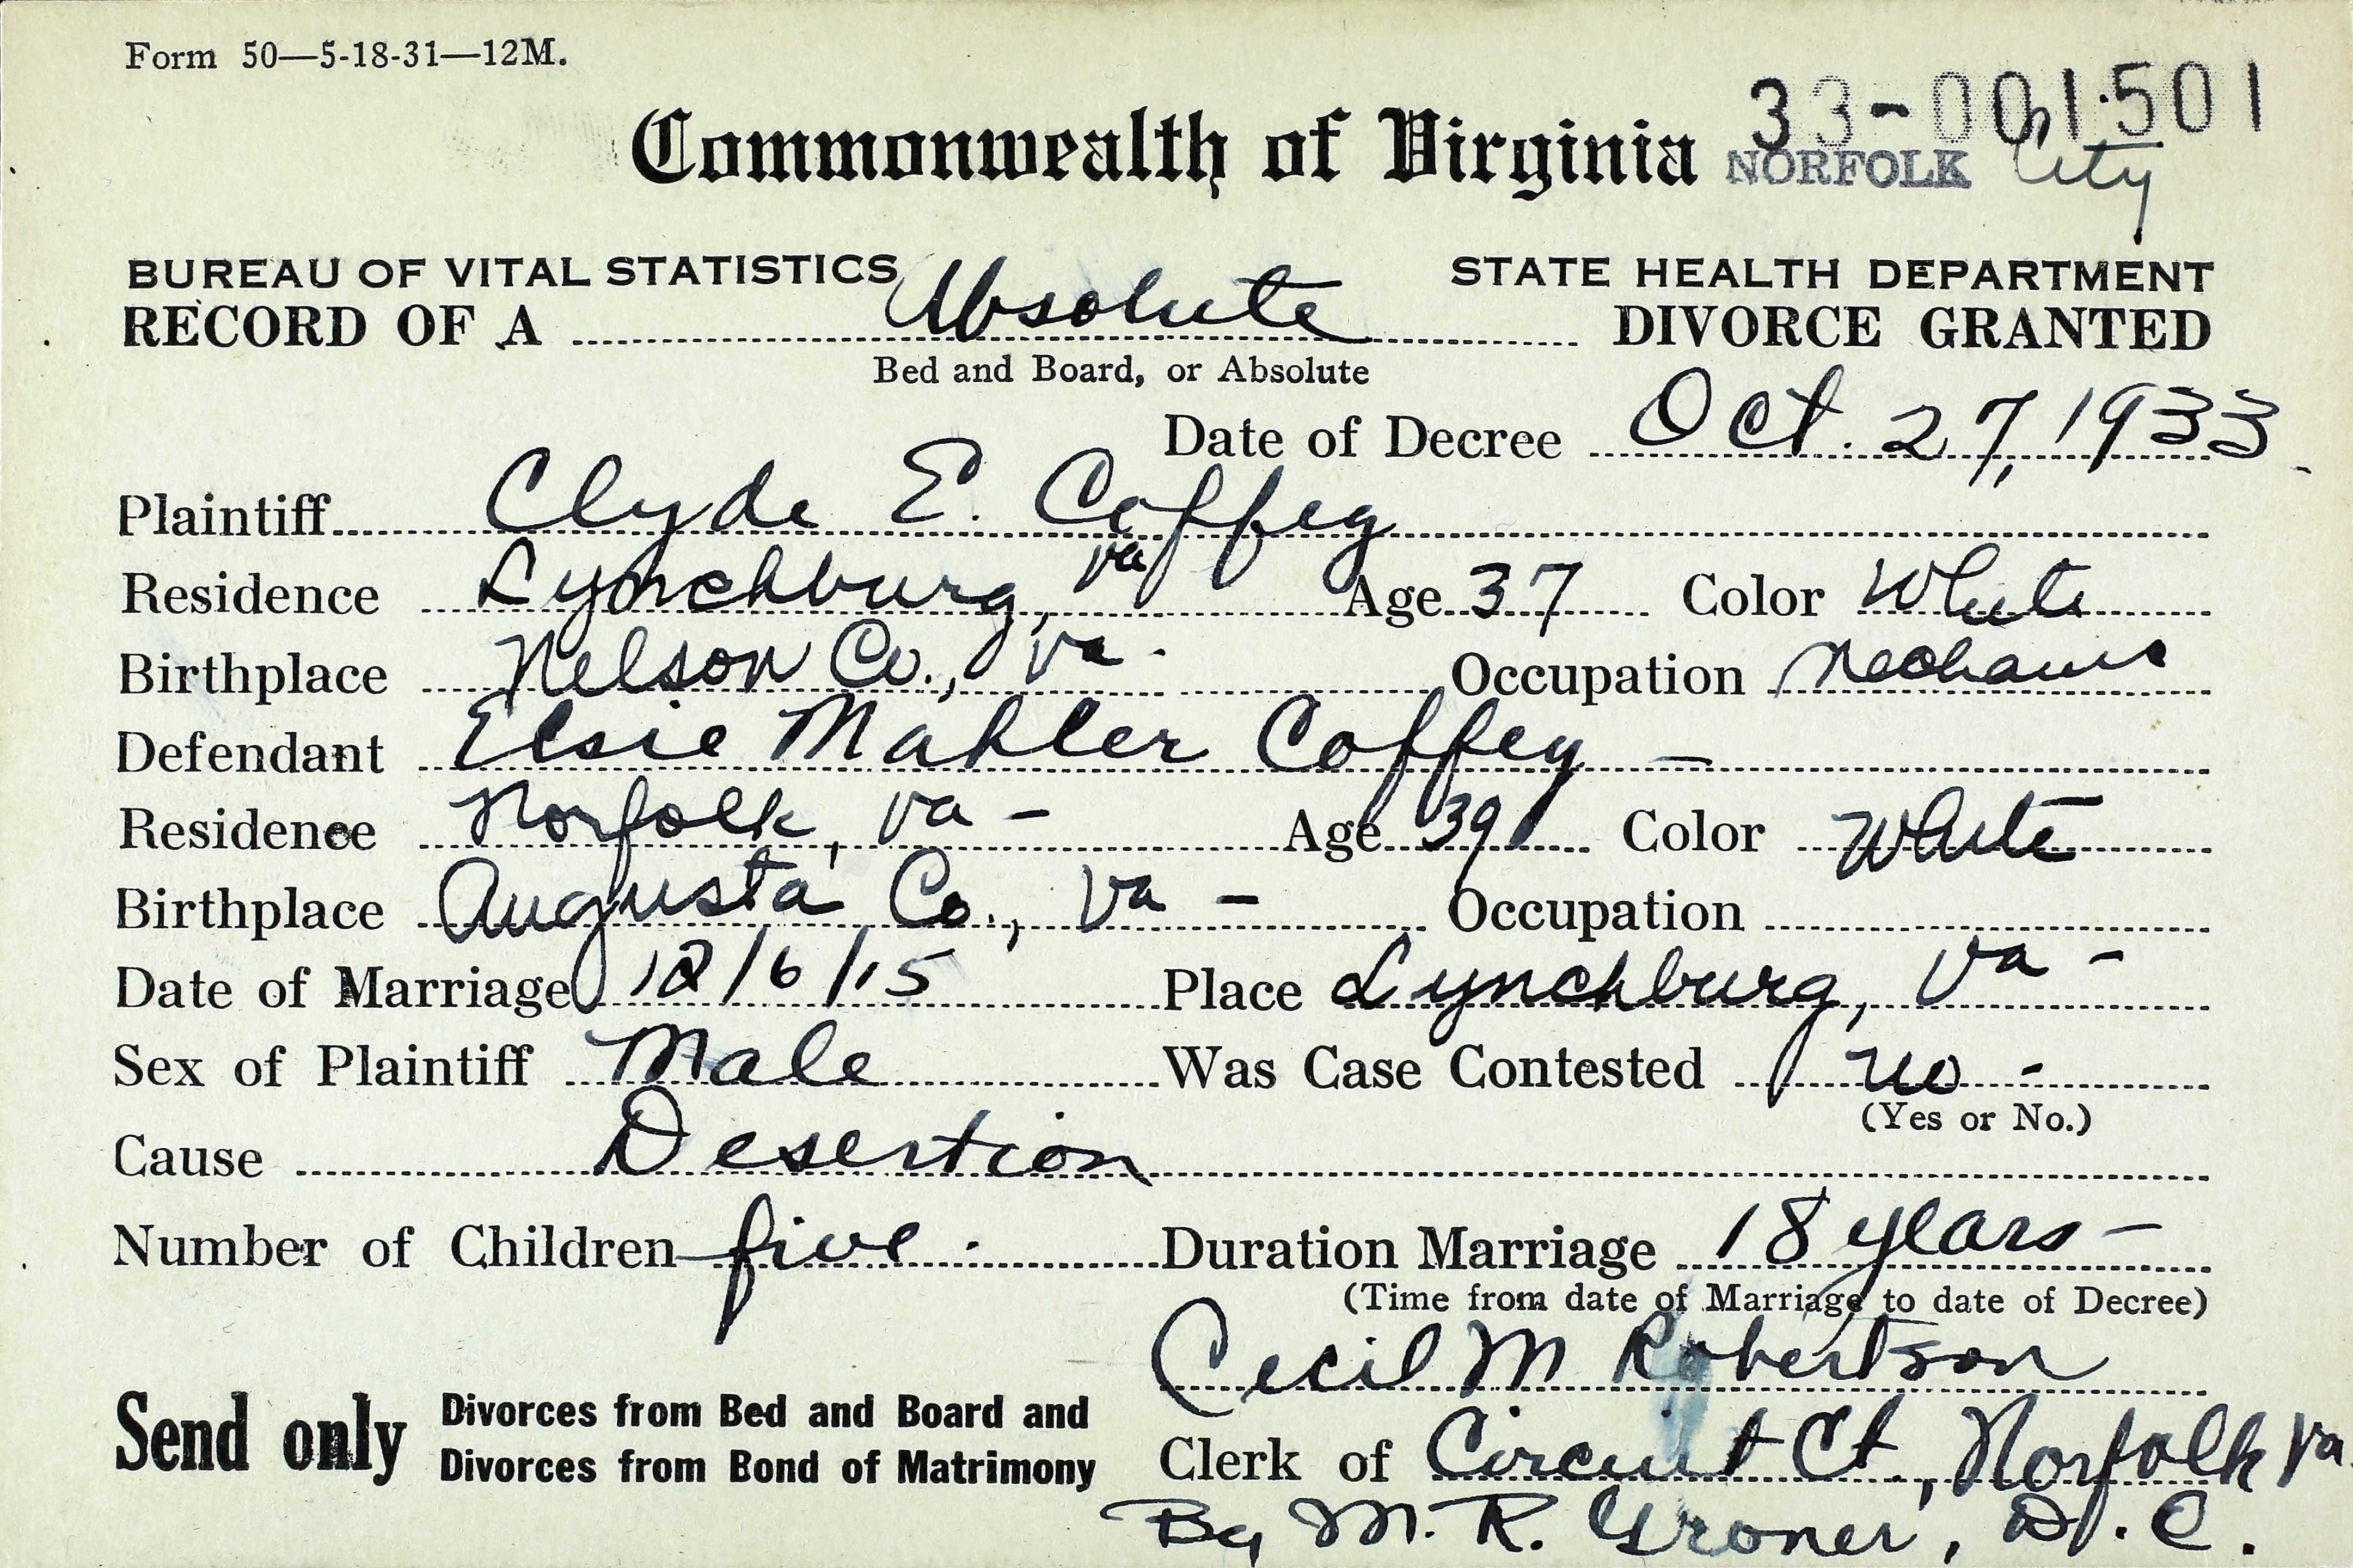 Form 50—5-18-31—12M.
33-001501
Commonwealth of Virginia NORFOLK City
BUREAU OF VITAL STATISTICS STATE HEALTH DEPARTMENT
RECORD OF A Absolute DIVORCE GRANTED
Bed and Board, or Absolute
Date of Decree Oct. 27, 1933
Plaintiff Clyde E. Coffey
Residence Lynchburg, Va Age 37 Color White
Birthplace Nelson Co., Va. Occupation Mechanic
Defendant Elsie Mahler Coffey —
Residence Norfolk, Va — Age 39 Color White
Birthplace Augusta Co., Va — Occupation
Date of Marriage 12/6/15 Place Lynchburg, Va —
Sex of Plaintiff Male Was Case Contested no -
(Yes or No.)
Cause Desertion
Number of Children five. Duration Marriage 18 years —
(Time from date of Marriage to date of Decree)
Cecil M Robertson
Send only Divorces from Bed and Board and
Divorces from Bond of Matrimony
Clerk of Circuit Ct., Norfolk Va.
By M. R. Groner, D. C.